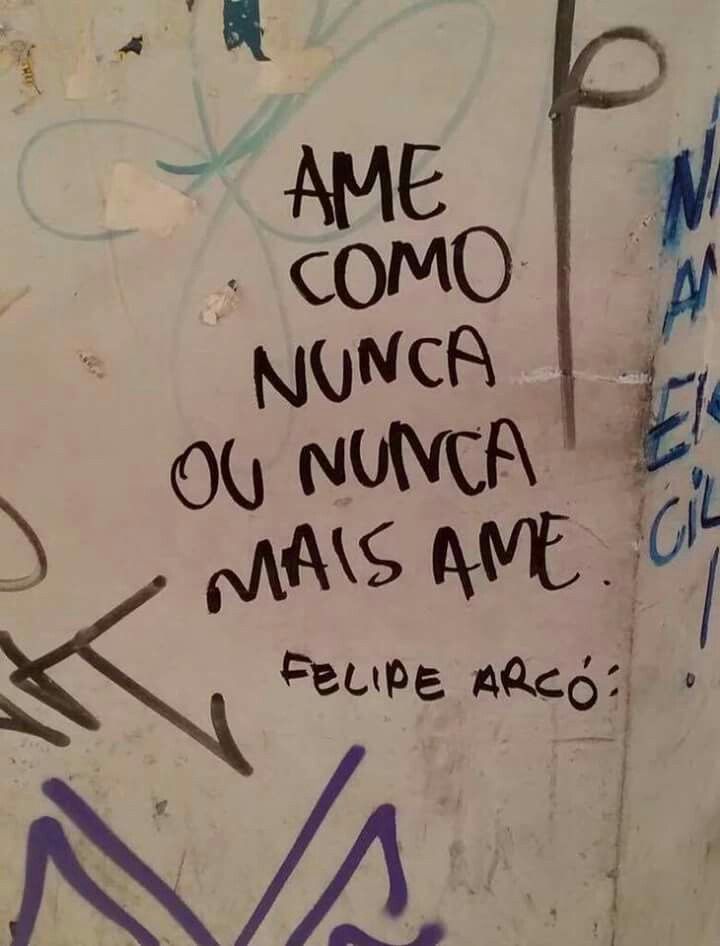 AME
COMO
NUNCA
OU NUNCA
MAIS AME.
FELIPE ARCÓ: